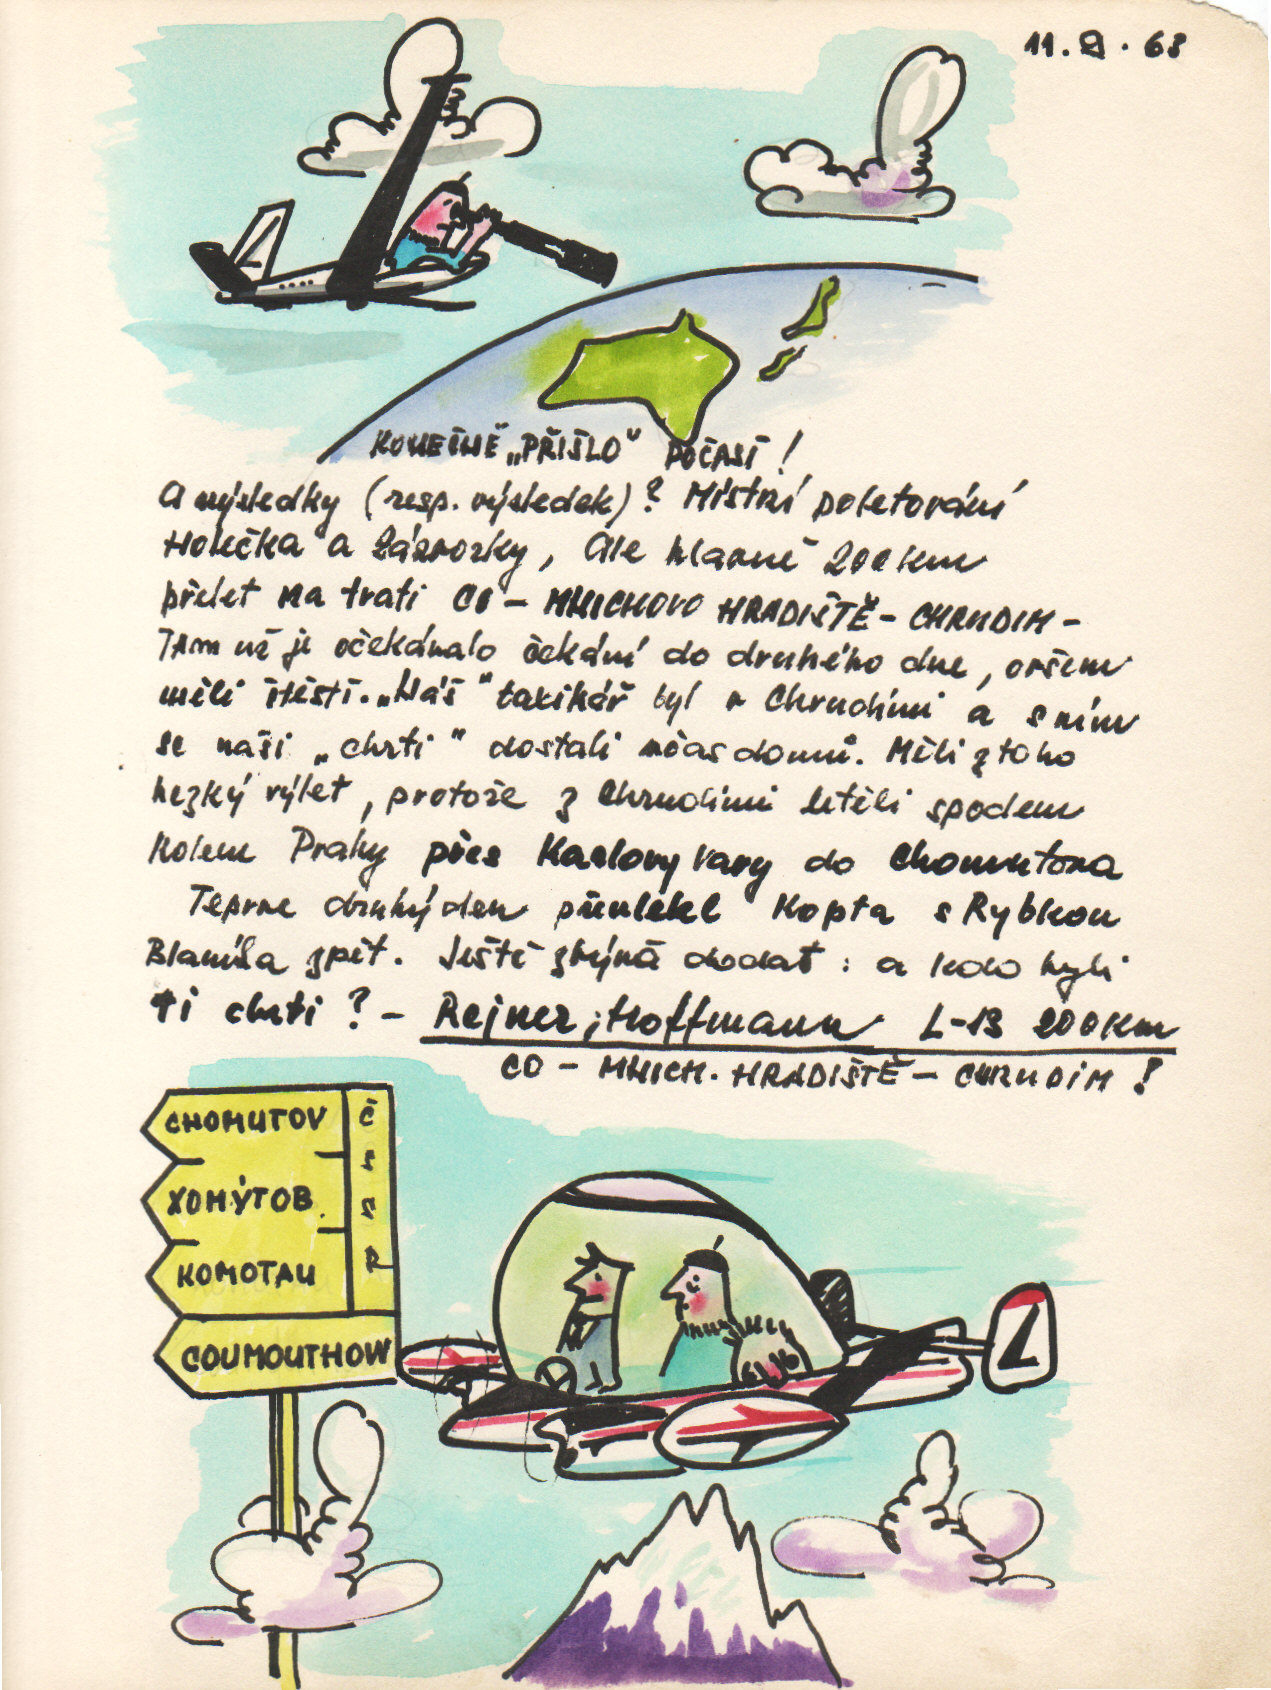 11. 9. 68
KONEČNĚ „PŘIŠLO" POČASÍ!
A výsledky (resp. výsledek)? Místní poletování
Holečka a Zázvorky, Ale hlavně 200 km
přelet na trati CO - MNICHOVO HRADIŠTĚ - CHRUDIM -
TAm už je očekávalo čekání do druhého dne, ovšem
měli štěstí. „Náš" taxikář byl v Chrudimi a s ním
se naši „chrti" dostali včas domů. Měli z toho
hezký výlet, protože z Chrudimi letěli spodem
Kolem Prahy přes Karlovy Vary do Chomutova
Teprve druhý den převlekl Kopta s Rybkou
Blaníka zpět. Ještě zbývá dodat: a kdo byli
ti chrti? - Rejner, Hoffmann L-13 200 Km
CO - MNICH. HRADIŠTĚ - CHRUDIM!
CHOMUTOV
ХОМУТОВ
KOMOTAU
COUMOUTHOW
Č
S
S
R